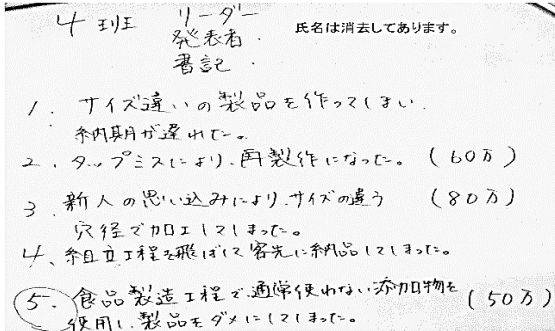 4班 リーダー
発表者.
書記.
氏名は消去してあります。
1. サイズ違いの製品を作ってしまい.
納期が遅れた。
2. タップミスにより、再製作になった。(60万)
3. 新人の思い込みにより、サイズの違う (80万)
穴径で加工してしまった。
4、組立工程を飛ばして客先に納品してしまった。
5. 食品製造工程で、通常使わない添加物を (50万)
使用し、製品をダメにしてしまった。